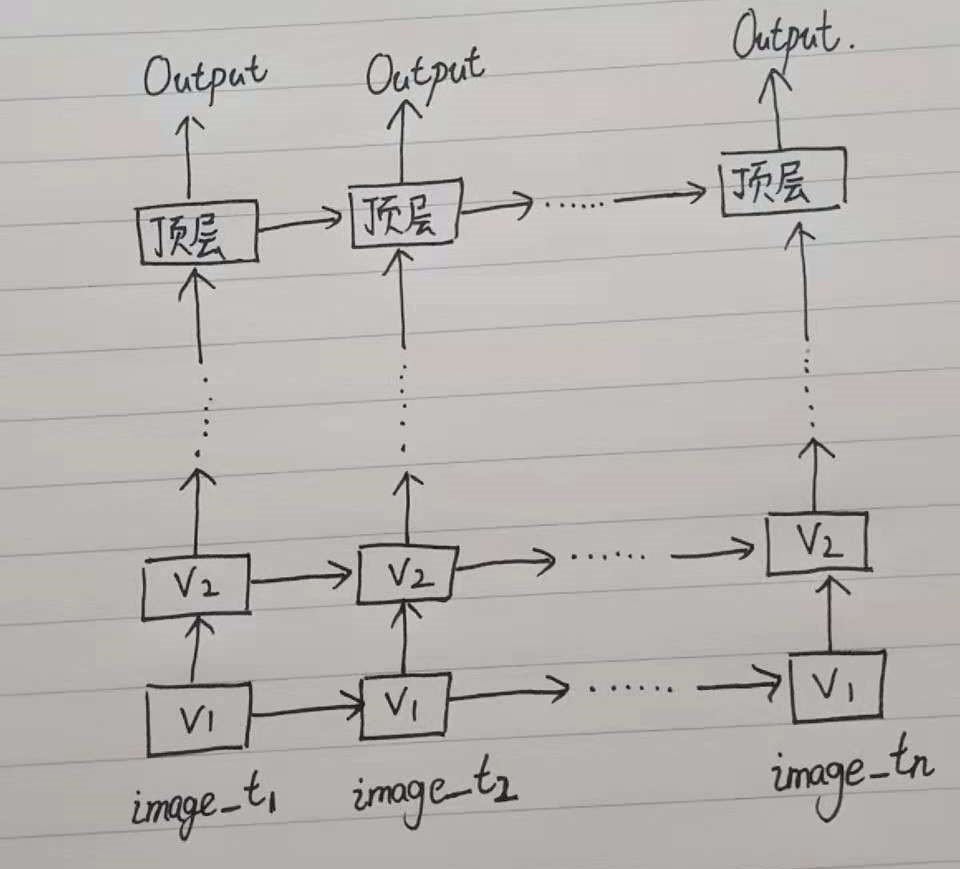 Output Output Output.
顶层 顶层 ...... 顶层
V2 V2 ...... V2
V1 V1 ...... V1
image_t1 image_t2 image_tn